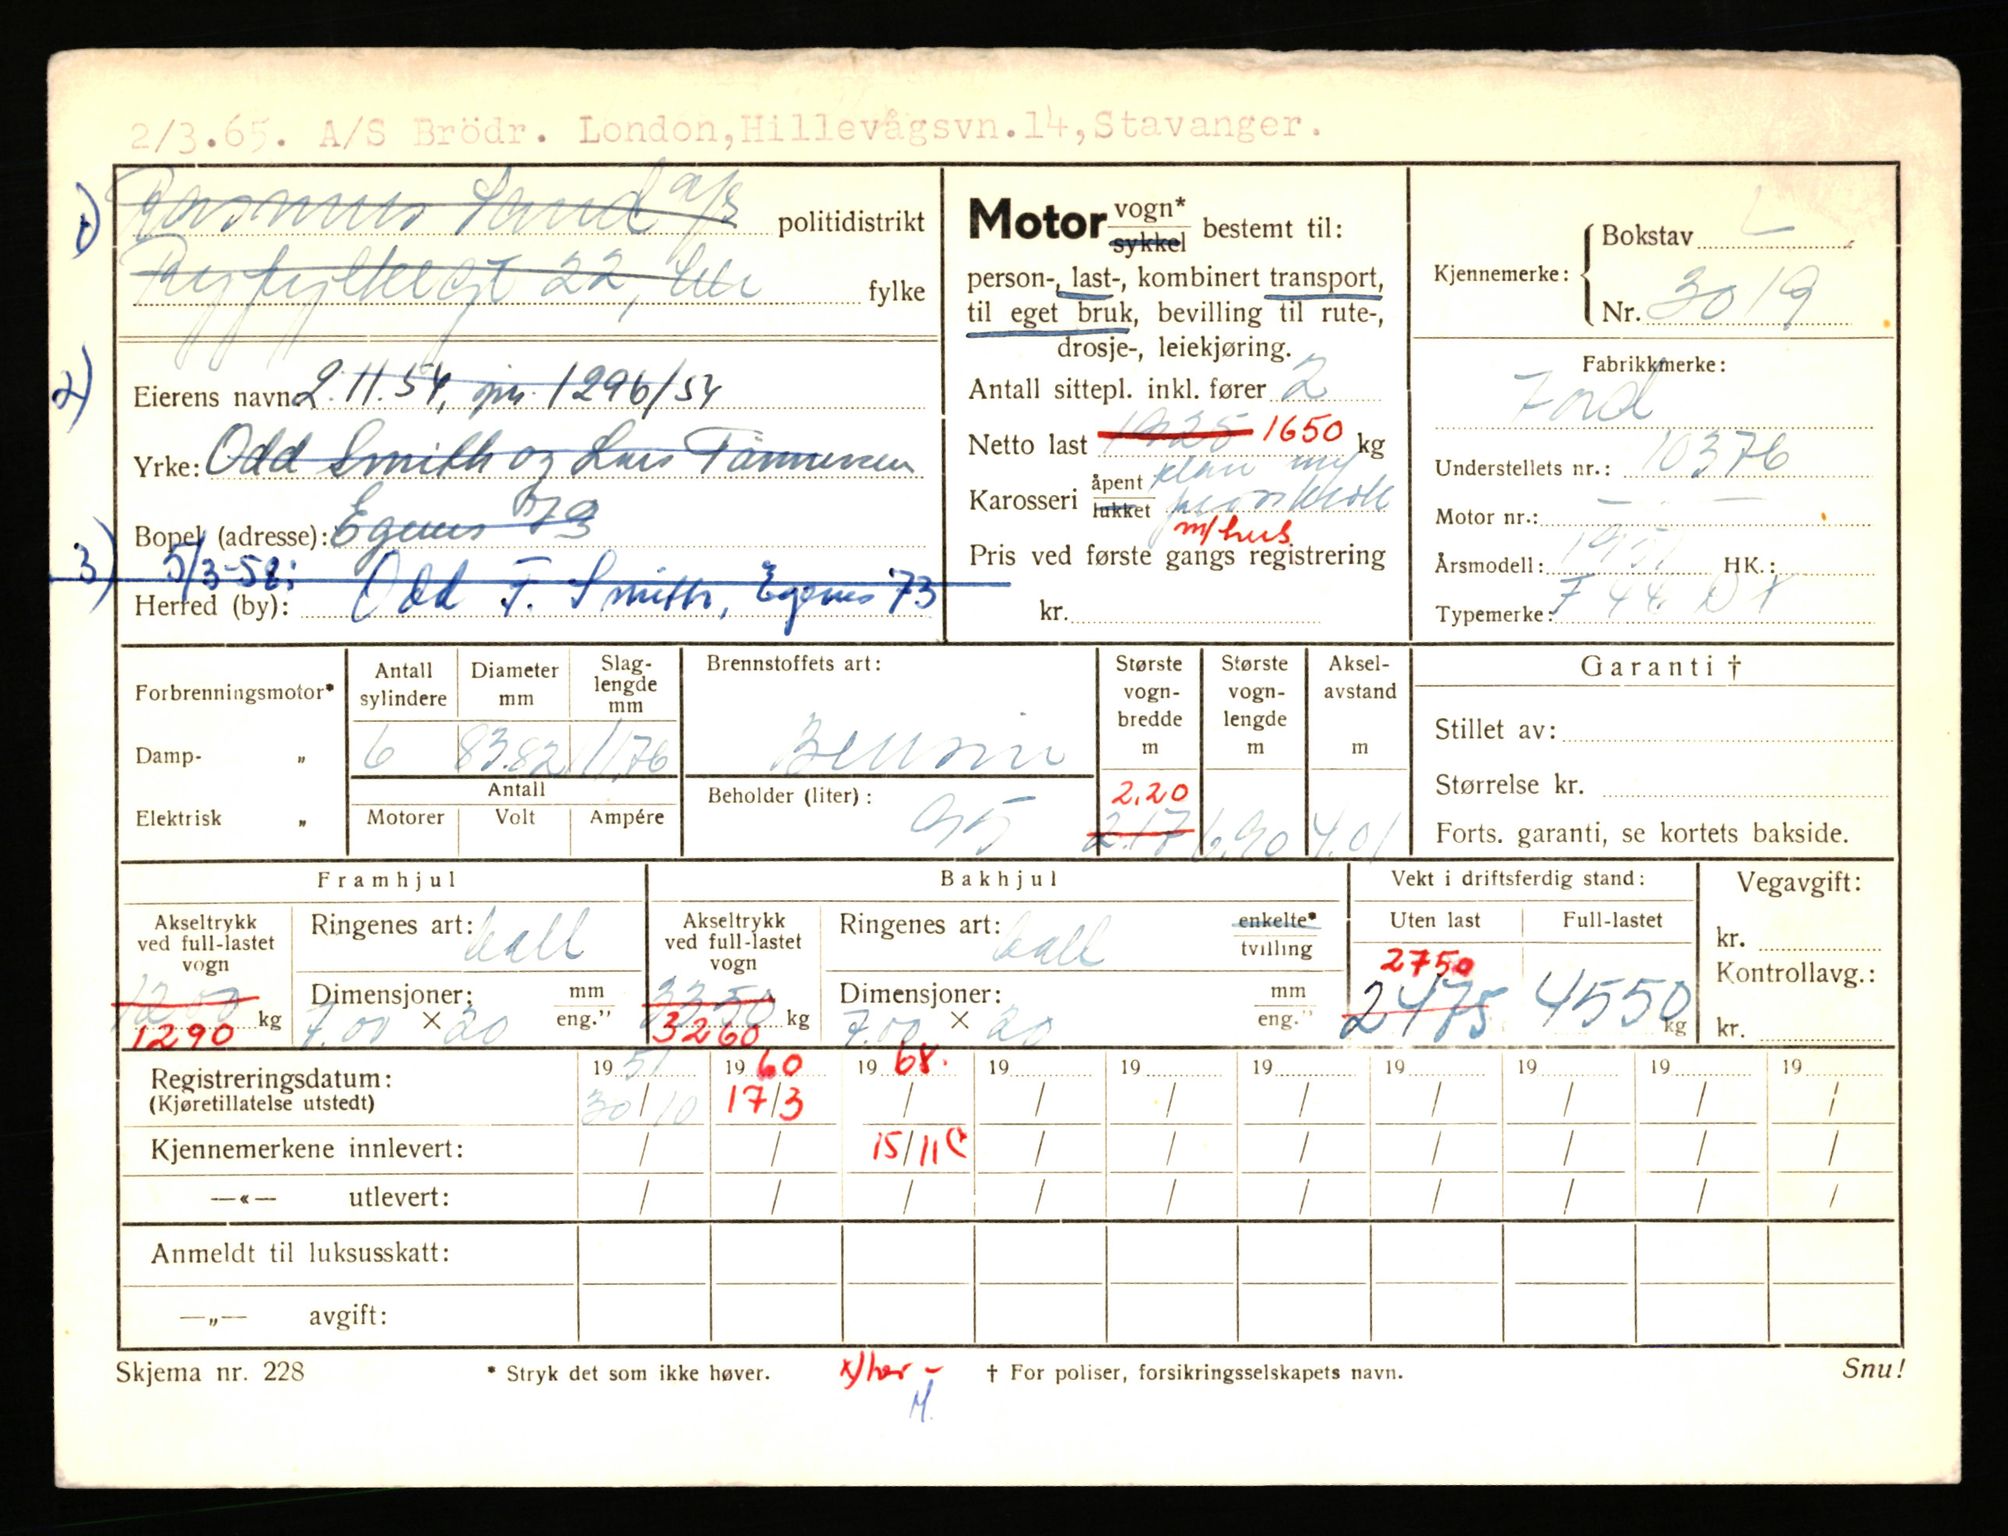 2/3.65. A/S Brödr. London, Hillevågsvn.14, Stavanger.
1) Rasmus Sand a/s politidistrikt
22, fylke
2) Eierens navn: 2.11.54, 1296/54
Yrke: Odd Smith og Lars Tönnessen
Bopel (adresse): Egenes 73
3) 5/3-58:
Herred (by): Odd F. Smith, Egenes 73
Motor vogn* sykkel bestemt til:
person-, last-, kombinert transport,
til eget bruk, bevilling til rute-,
drosje-, leiekjøring.
Antall sittepl. inkl. fører 2
Netto last 1925 1650 kg
Karosseri åpent lukket plan m/
m/hus
Pris ved første gangs registrering
kr.
Kjennemerke: Bokstav L
Nr. 3019
Fabrikkmerke:
Ford
Understellets nr.: 10376
Motor nr.: — —
Årsmodell: 1951 HK.:
Typemerke: F 44
Forbrenningsmotor*
Damp- „
Elektrisk „
Antall sylindere Diameter mm Slaglengde mm
6 83.82 11.76
Antall
Motorer Volt Ampére
Brennstoffets art:
Bensin
Beholder (liter): 95
Største vognbredde m
2.20
2.17
Største vognlengde m
6.90
Akselavstand m
4.01
Garanti †
Stillet av:
Størrelse kr.
Forts. garanti, se kortets bakside.
Framhjul
Akseltrykk ved full-lastet vogn
1200
1290 kg
Ringenes art: ball
Dimensjoner: mm eng."
7.00 × 20
Bakhjul
Akseltrykk ved full-lastet vogn
3350
3260 kg
Ringenes art: ball enkelte* tvilling
Dimensjoner: mm eng."
7.00 × 20
Vekt i driftsferdig stand:
Uten last Full-lastet
2750
2475 4550 kg
Vegavgift:
kr.
Kontrollavg.:
kr.
Registreringsdatum: 1951 1960 1968. 19 19 19 19 19 19 19
(Kjøretillatelse utstedt) 30/10 17/3 / / / / / / / /
Kjennemerkene innlevert: / / 15/11 / / / / / / /
—«— utlevert: / / / / / / / / / /
Anmeldt til luksusskatt:
—„— avgift:
Skjema nr. 228 * Stryk det som ikke høver. x) her - † For poliser, forsikringsselskapets navn. Snu!
M.